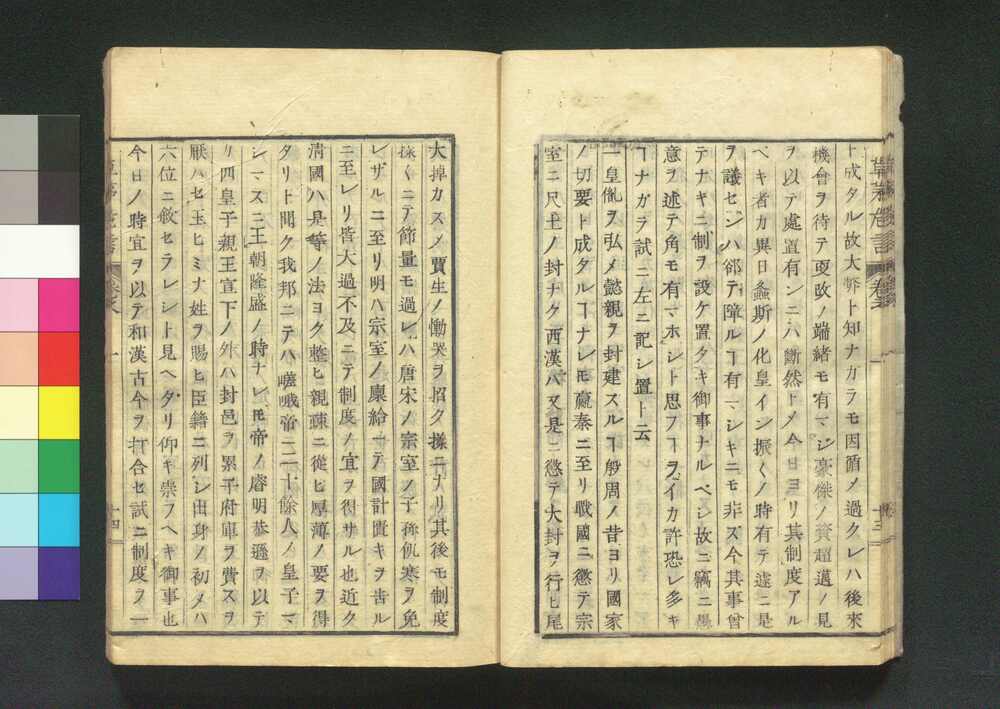 ト成タル故大弊ト知ナガラモ因循メ過クレハ後來
機會ヲ待テ更改ノ端緒モ有マジ豪傑ノ資超邁ノ見
ヲ以テ處置有ンニハ斷然トメ今日ヨリ其制度アル
ベキ者カ異日螽斯ノ化皇イン振々ノ時有テ遽ニ是
ヲ議センハ郤テ障ルヿ有マシキニモ非ズ今其事曾
テナキニ制ヲ設ケ置タキ御事ナルベシ故ニ竊ニ愚
意ヲ述テ角モ有マホシト思フヿヲイカ許恐レ多キ
ヿナガラ試ニ左ニ記シ置ト云
一皇胤ヲ弘メ懿親ヲ封建スルヿ殷周ノ昔ヨリ國家
ノ切要ト成タルヿナレモ嬴秦ニ至リ戰國ニ懲テ宗
室ニ尺土ノ封ナク西漢ハ又是ニ懲テ大封ヲ行ヒ尾
大掉カスメ賈生ノ慟哭ヲ招ク樣ニナリ其後モ制度
樣々ニテ節量モ過レハ唐宋ノ宗室ノ子孫飢寒ヲ免
レザルニ至リ明ハ宗室ノ廩給ニテ國計匱キヲ告ル
ニ至レリ皆大過不及ニテ制度ノ宜ヲ得サル也近ク
淸國ハ是等ノ法ヨク整ヒ親疎ニ從ヒ厚薄ノ要ヲ得
タリト聞ク我邦ニテハ嵯峨帝二十餘人ノ皇子マ
シマスニ王朝隆盛ノ時ナレモ帝ノ睿明恭遜ヲ以テ
四皇子親王宣下ノ外ハ封邑ヲ累子府庫ヲ費スヲ
厭ハセ玉ヒミナ姓ヲ賜ヒ臣籍ニ列シ出身ノ初メハ
六位ニ敘セラレシト見ヘタリ仰キ崇フヘキ御事也
今日ノ時宜ヲ以テ和漢古今ヲ打合セ試ニ制度ヲ一
十三
十四